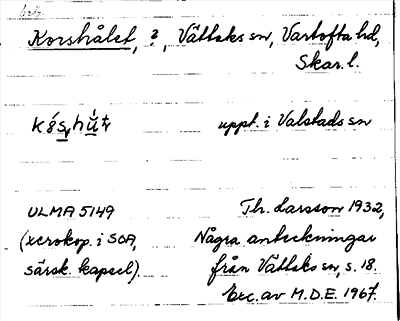 beb.
Korshålet, ?, Vättaks sn, Vartofta hd,
Skar. l.
uppt. i Valstads sn
ULMA 5149 Th. Larsson 1932,
(xerokop. i SOA, Några anteckningar
särsk. kapsel). från Vättaks sn, s. 18.
Exc. av M.D.E. 1967.